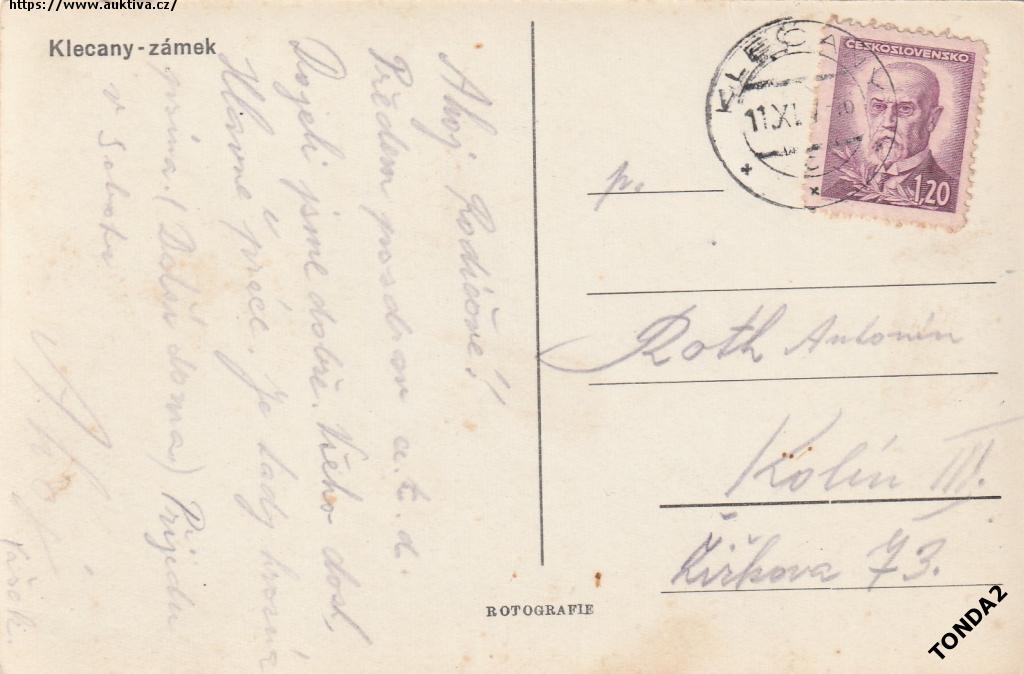 https://www.auktiva.cz/
Klecany-zámek
Ahoj Rodičové!
Předem pozdrav a. t. d.
Dojeli jsme dobře. Všeho dost,
Hlavně i práce. Je tady hrozná
(Dolů doma) Přijedu
v Sobotu
KLECANY
11.XI.
ČESKOSLOVENSKO
1,20
p.
Roth Antonín
Kolín III.
Žižkova 73.
ROTOGRAFIE
TONDA2